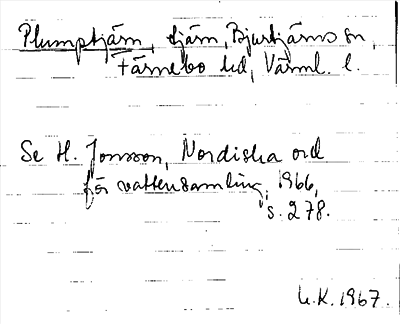 Plumptjärn, tjärn, Bjurtjärns sn,
Färnebo hd, Värml. l.
Se H. Jonsson, Nordiska ord
för vattensamling, 1966,
s. 278.
U.K. 1967.